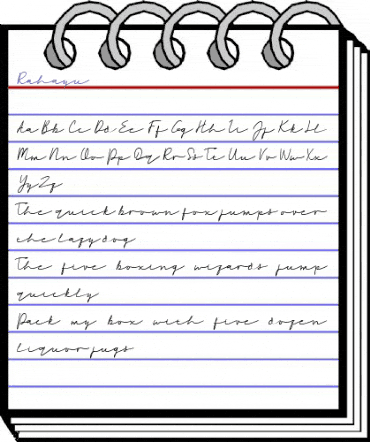 Rahayu
Aa Bb Cc Dd Ee Ff Gg Hh Ii Jj Kk Ll
Mm Nn Oo Pp Qq Rr Ss Tt Uu Vv Ww Xx
Yy Zz
The quick brown fox jumps over
the lazy dog
The five boxing wizards jump
quickly
Pack my box with five dozen
liquor jugs